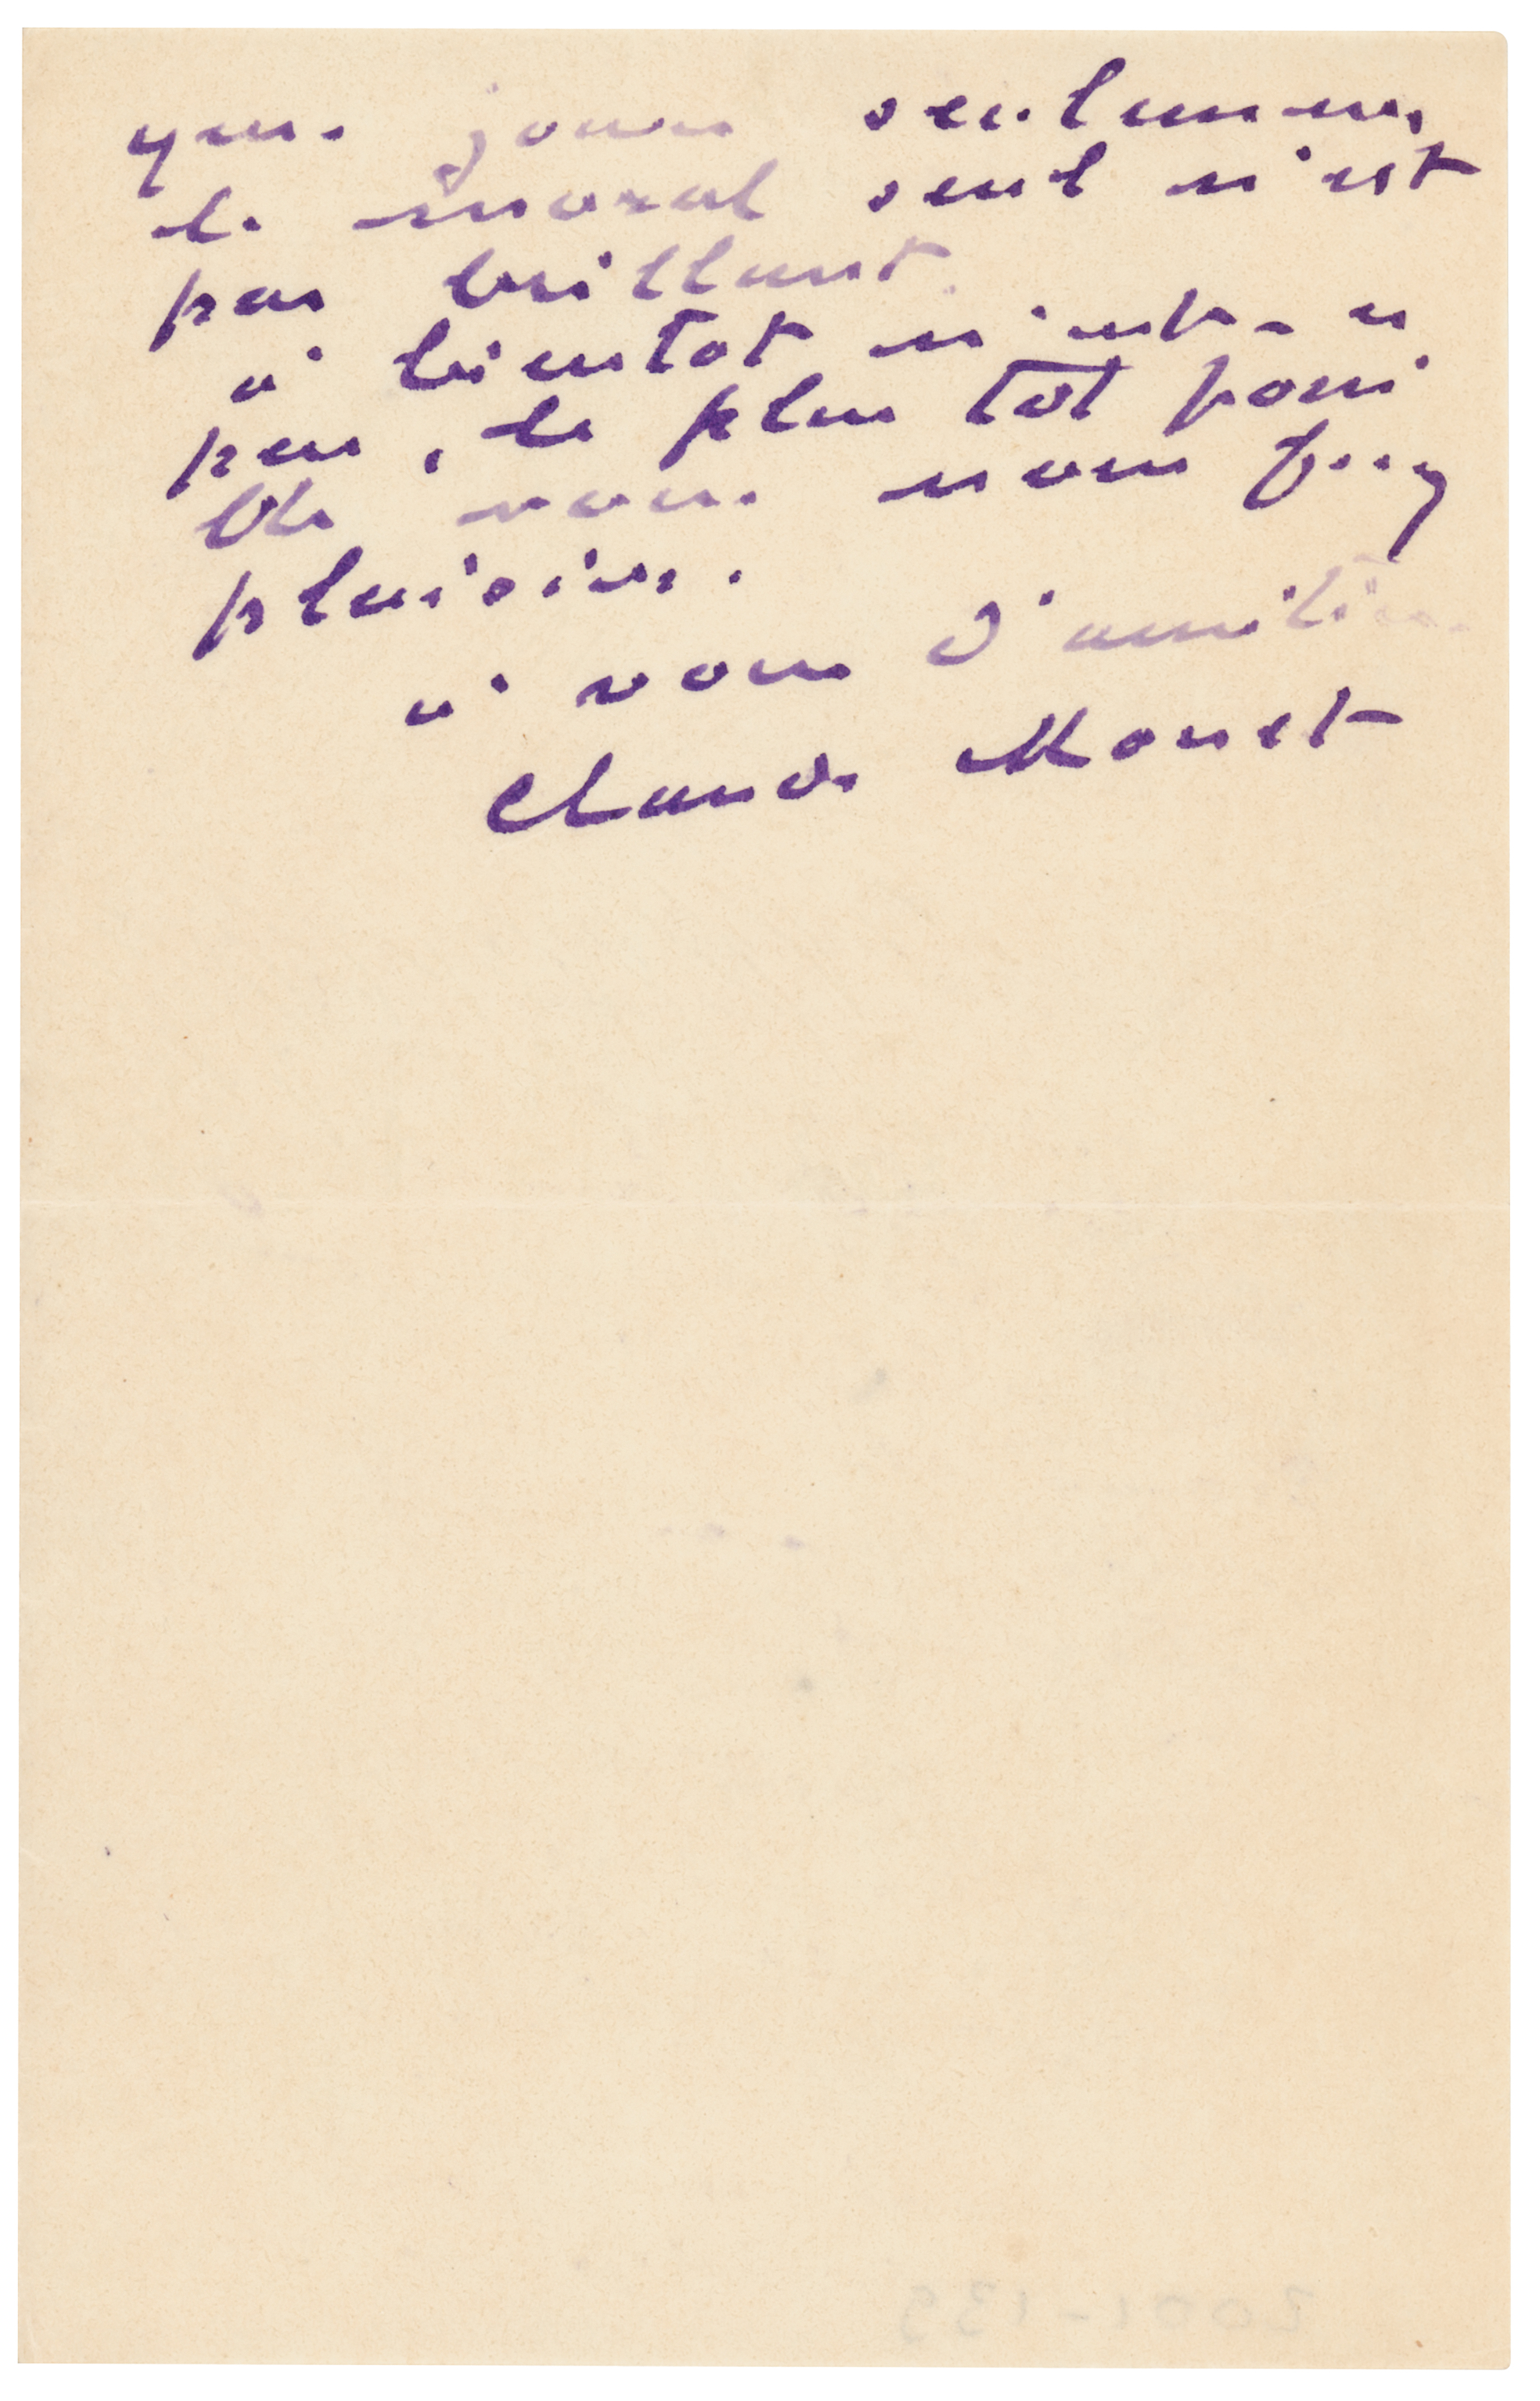 que jour seulement
le moral seul n'est
pas brillant.
à bientot n'est-ce
pas, le plus tôt possi
ble vous nous ferez
plaisir.
à vous d'amitié
Claude Monet
2001-135